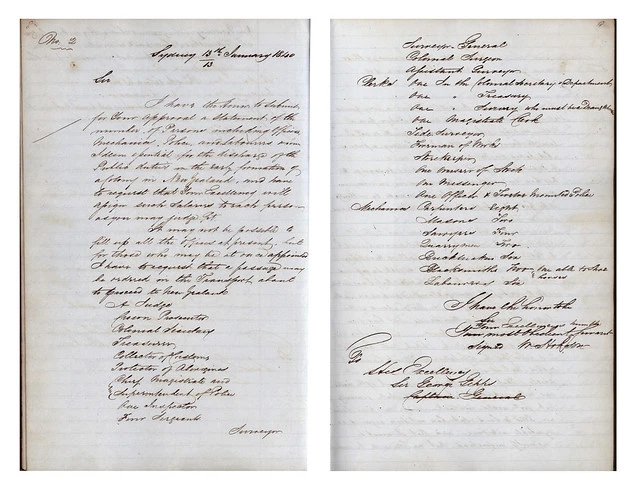 No. 2
Sydney 13th January 1840
13
Sir
I have the honor to submit
for Your approval a Statement of the
number of Persons including Officers
Mechanics, Police, and laborers whom
I deem essential for the discharge of the
Public duties in the early formation of
a Colony in New Zealand, and have
to request that Your Excellency will
assign such Salaries to each person
as you may judge fit
It may not be possible to
fill up all the offices at present, but
for those who may be at once appointed
I have to request that a passage may
be ordered in the Transport about
to proceed to New Zealand
A Judge
Crown Prosecutor
Colonial Secretary
Treasurer
Collector of Customs
Protector of Aborigines
Chief Magistrate and
Superintendent of Police
One Inspector
Four Sergeants
Surveyor
Surveyor General
Colonial Surgeon
Assistant Surveyor
Clerks One In the Colonial Secretary's Department
One " Treasury
One " Survey who must be a Draughtsman
One Magistrate Clerk
Tide Surveyor
Foreman of Works
Storekeeper
One Messenger
One Officer & Twelve Mounted Police
Mechanics Carpenters Eight
Masons Two
Sawyers Four
Quarrymen Two
Blacksmiths Two One able to Shoe
horses
Labourers Six
I have the honor to be
Sir
Your Excellency's humble
Your most Obedient Servant
Signed W Hobson
To
His Excellency
Sir George Gipps
Captain General